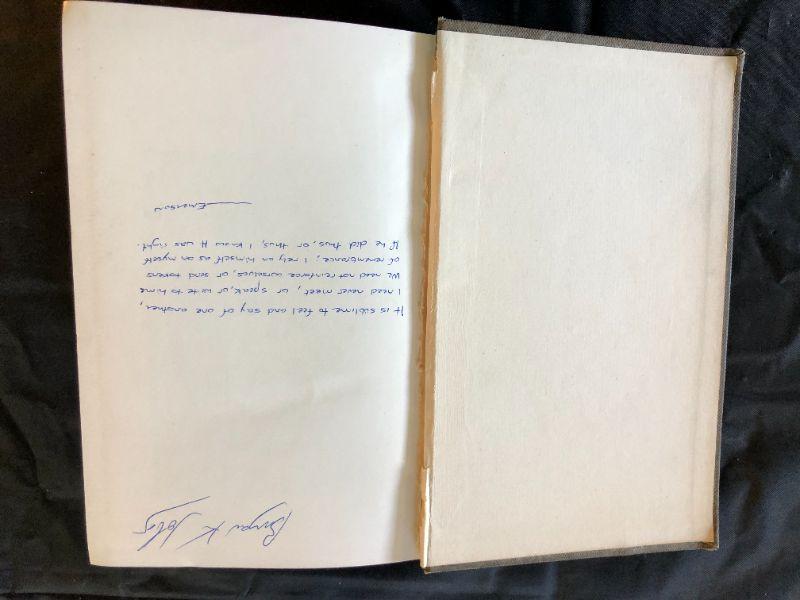 It is sublime to feel and say of one another,
I need never meet, or speak, or write to hime
We need not reinforce ourselves, or send tokens
of remembrance; I rely on himself as on myself
If he did thus, or thus, I know it was right.
Emerson